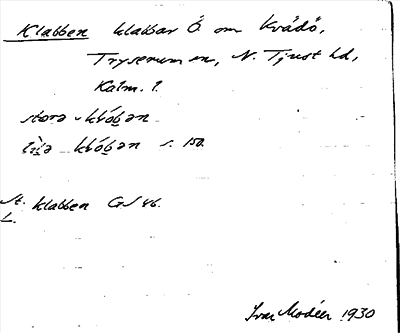 Klabben klabbar Ö. om Kvädö,
Tryserum sn, N. Tjust hd,
Kalm. l.
stora - klóban
lìla klóban s. 150.
St. Klabben GS 46.
L.
Ivar Modéer 1930